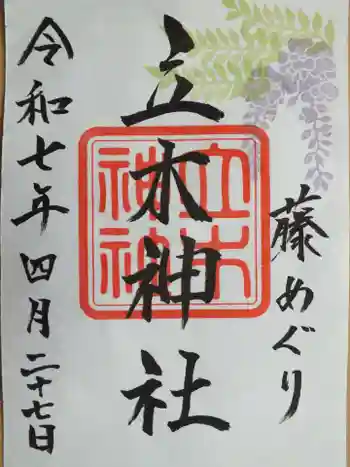 藤めぐり
立木神社
令和七年四月二十七日
立木
神社